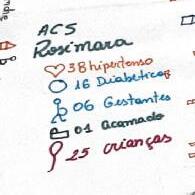 ACS
Rosimara
38 hipertenso
16 Diabéticos
06 Gestantes
01 acamado
25 crianças